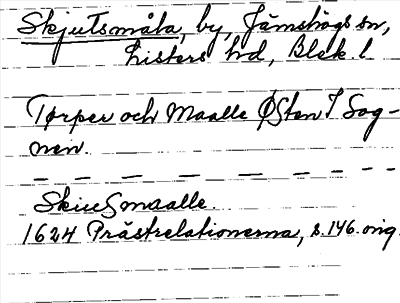 Skjutsmåla, by, Jämshögs sn,
Listers hd, Blek. l.
Tørper och Maalle Østen I Sog-
nen.
SkiuSmaalle.
1624 Prästrelationerna, s. 146. orig.